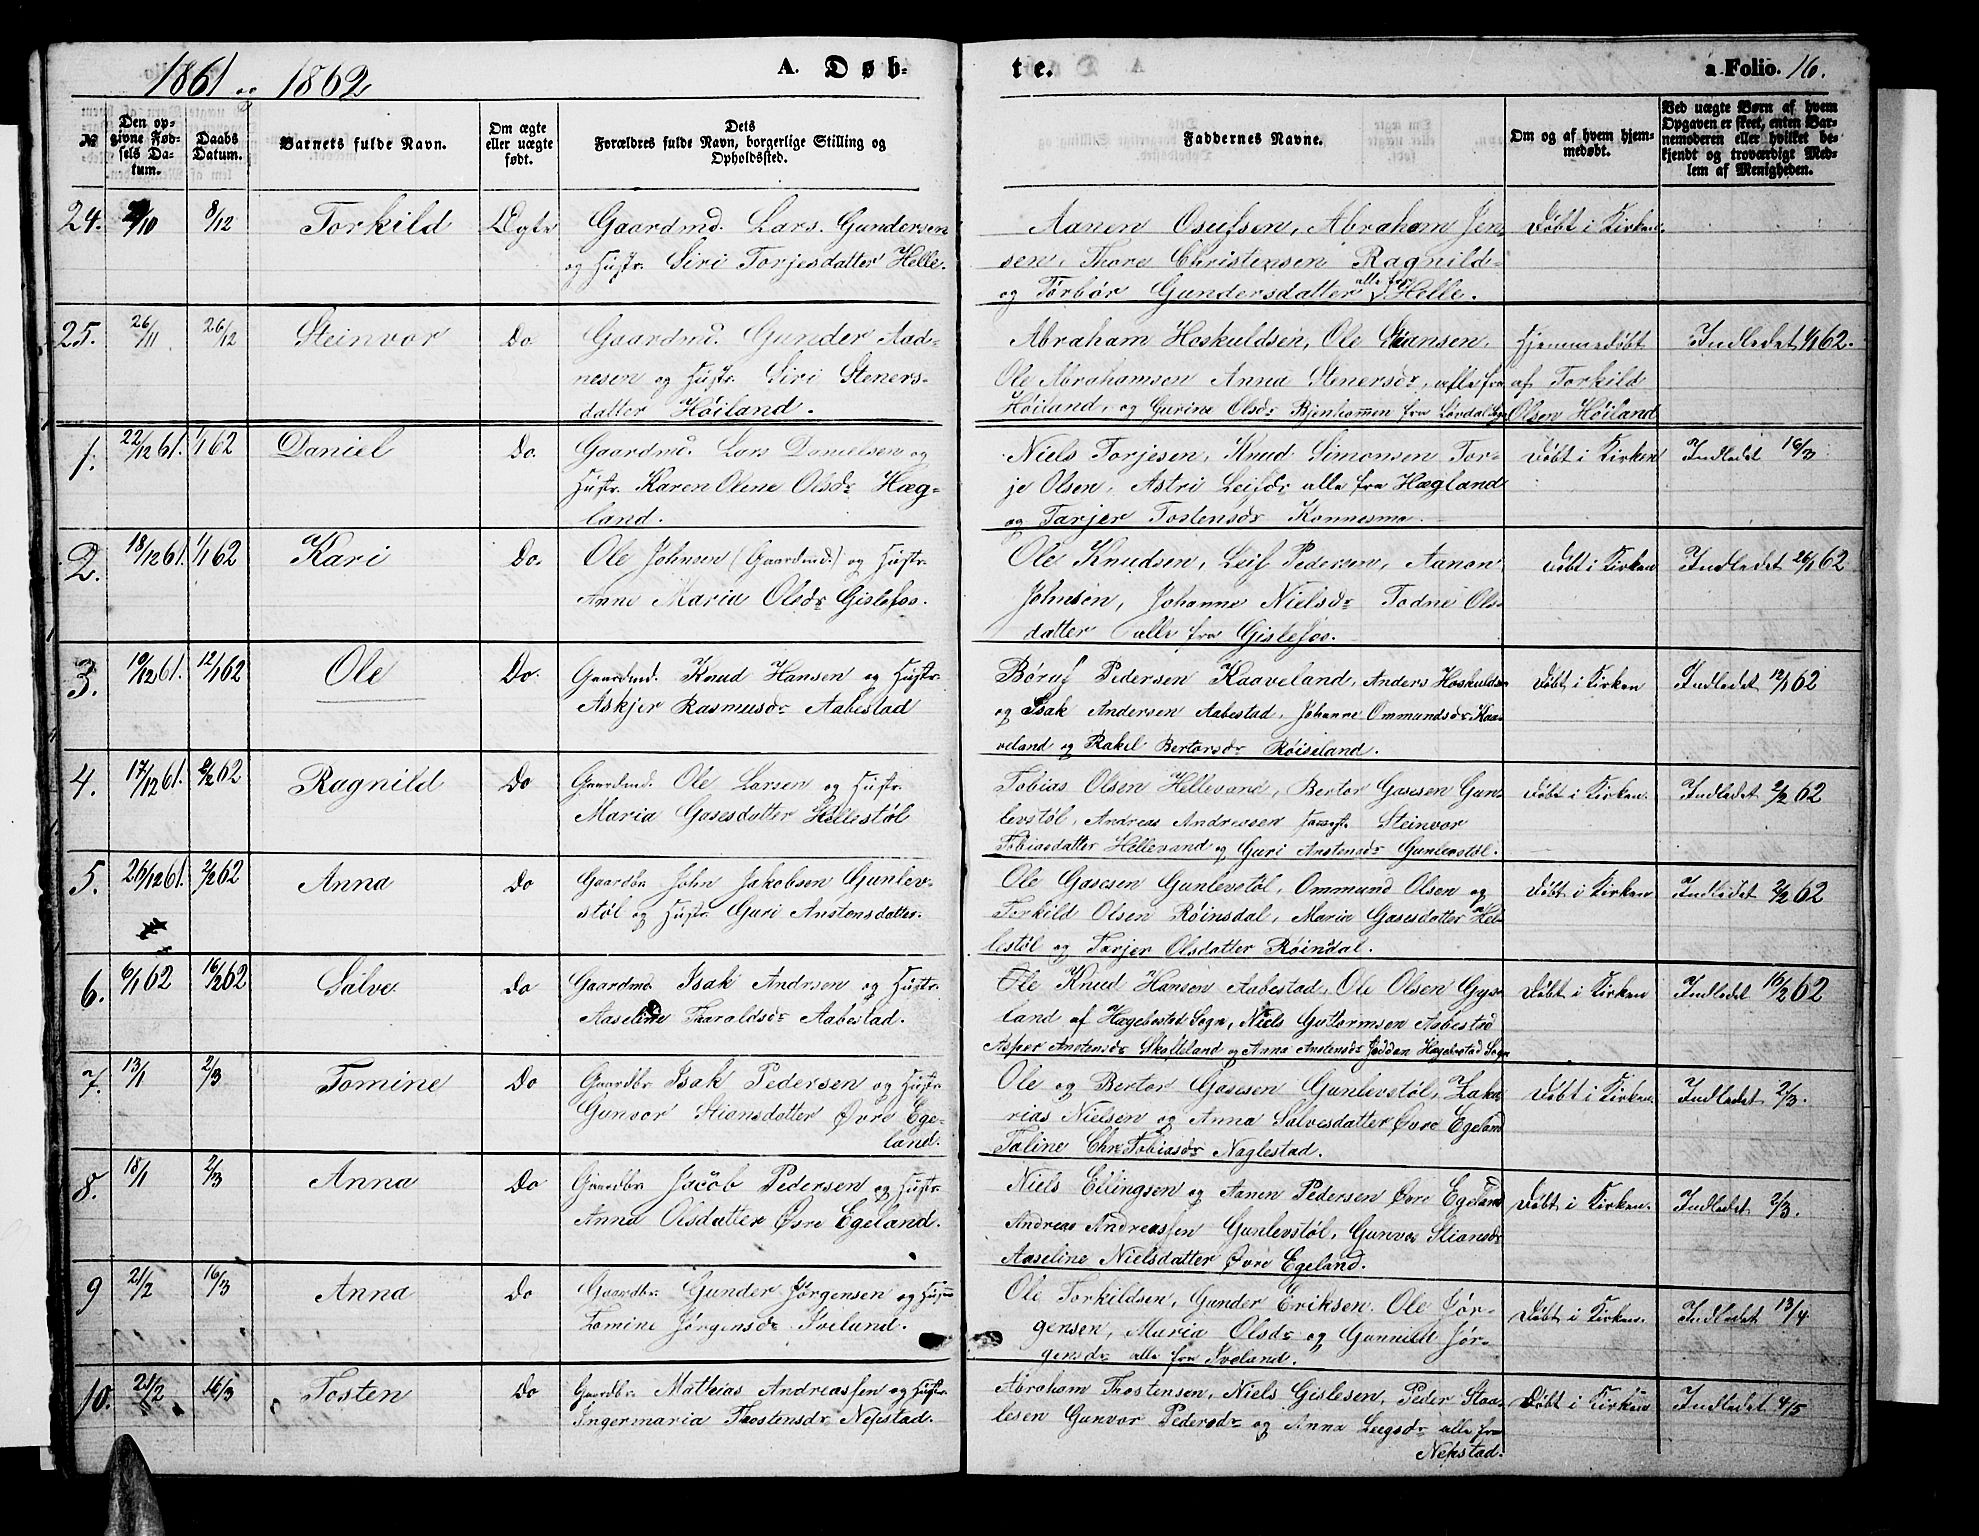 1861 og 1862
A. Døb-
te.
a Folio. 16.
№
Den op-
givne Fød-
sels Da-
tum.
Daabs
Datum.
Barnets fulde Navn.
Om ægte
eller uægte
født.
Dets
Forældres fulde Navn, borgerlige Stilling og
Opholdssted.
Faddernes Navne.
Om og af hvem hjem-
medøbt.
Ved uægte Børn af hvem
Opgaven er skeet, enten Bar-
nemoderen eller hvilket be-
kjendt og troværdigt Med-
lem af Menigheden.
24. /10 8/12 Torkild Ægte Gaardmd. Lars Gundersen
og Hustr. Siri Torjesdatter Helle.
Aanen Osufsen, Abraham Jen-
sen, Thore Christensen Ragnild
og Tørbør Gundersdatter alle fra Helle.
Døbt i Kirken.
25. 26/11 26/12 Steinvor Do Gaardmd. Gunder Aad-
nesen og Hustr. Siri Steners-
datter Høiland.
Abraham Hoskuldsen, Ole Stiansen,
Ole Abrahamsen Anna Stenersdr, alle fra
Høiland, og Gurine Olsdr Bjenhammen fra Løvdal Sogn
Hjemmedøbt
af Torkild
Olsen Høiland
Indledet 1/1 62.
1. 22/12 61. 1/1 62 Daniel Do. Gaardmd. Lars Danielsen og
Hustr. Karen Oline Olsdr Hæg-
land.
Niels Torjesen, Knud Simonsen Tor-
je Olsen, Astri Leifsdr alle fra Hægland
og Tarjer Tostensdr Konnesmo.
Døbt i Kirken
Indledet 16/3
2. 18/12 61. 1/1 62 Kari Do. Ole Johnsen (Gaardmd.) og Hustr.
Anne Maria Olsdr Gislefos.
Ole Knudsen, Leif Pedersen, Aanon
Johnsen, Johanne Nielsdr Todne Ols-
datter alle fra Gislefos.
Døbt i Kirken
Indledet 26/1 62
3. 10/12 61. 12/1 62 Ole Do. Gaardmd. Knud Hansen og Hustr.
Askjer Rasmusdr Aabestad
Børuf Pedersen Kaaveland, Anders Hoskulds-
og Isak Andersen Aabestad, Johanne Ommundsdr Kaa-
veland og Rakel Bertorsdr Røiseland.
Døbt i Kirken
Indledet 12/1 62
4. 17/12 61. 2/2 62 Ragnild Do Gaardmd. Ole Larsen og Hustr.
Maria Gasesdatter Hellestøl
Tobias Olsen Hellevand, Bertor Gasesen Gun-
levstøl, Andreas Andreasen Steinvor
Tobiasdatter Hellevand og Guri Anstensdr Gunlevstøl.
Døbt i Kirken.
Indledet 2/2 62
5. 26/12 61. 2/2 62 Anna Do Gaardbr John Jakobsen Gunlev-
støl og Hustr. Guri Anstensdatter.
Ole Gasesen Gunlevstøl, Ommund Olsen og
Terkild Olsen Røinsdal, Maria Gasesdatter Hel-
lestøl og Tarjer Olsdatter Røindal.
Døbt i Kirken
Indledet 2/2 62
6. 6/1 62 16/2 62 Salve Do Gaardmd Isak Andrsen og Hustr.
Aaseline Tharaldsdr Aabestad.
Ole Knud Hansen Aabestad, Ole Olsen Gys-
land af Hægebostad Sogn, Niels Guttormsen Aabestad
Asper Anstensdr Skatteland og Anna Anstensdr Jøddan Hægebostad Sogn
Døbt i Kirken
Indledet 16/2 62
7. 13/1 2/3 Tomine Do Gaardbr Isak Pedersen og Hustr
Gunvor Stiansdatter Øvre Ege-
land.
Ole og Bertor Gasesen Gunlevstøl, Zaka-
rias Nielsen og Anna Salvesdatter Øvre Egeland
Taline Chr. Tobiasdr Naglestad.
Døbt i Kirken.
Indledet 2/3.
8. 18/1 2/3 Anna Do Gaardbr. Jacob Pedersen og Hustr.
Anna Olsdatter Øvre Egeland.
Niels Ellingsen og Aanen Pedersen Øvre Egeland
Andreas Andreassen Gunlevstøl, Gunvor Stiansdr
Aaseline Nielsdatter Øvre Egeland.
Døbt i Kirken.
Indledet 2/3.
9 21/2 16/3 Anna Do Gaardbr. Gunder Jørgensen og Hustr
Tomine Jørgensdr Iveland.
Ole Torkildsen, Gunder Eriksen, Ole Jør-
gensen, Maria Olsdr og Gunnild Jør-
gensdr alle fra Iveland.
Døbt i Kirken.
Indledet 13/4
10. 21/2 16/3 Tosten Do Gaardbr. Mathias Andreassen og Hustr.
Ingermaria Thostensdr Nepstad.
Abraham Thostensen, Niels Gislesen, Peder Staa-
lesen Gunvor Pedersdr og Anna Leegsdr alle fra
Nepstad.
Døbt i Kirken
Indledet 4/5